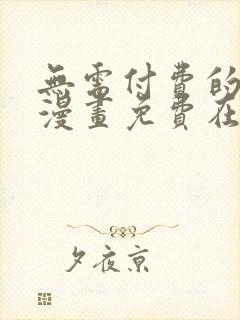 無需付費的
漫畫免費在
夕夜京